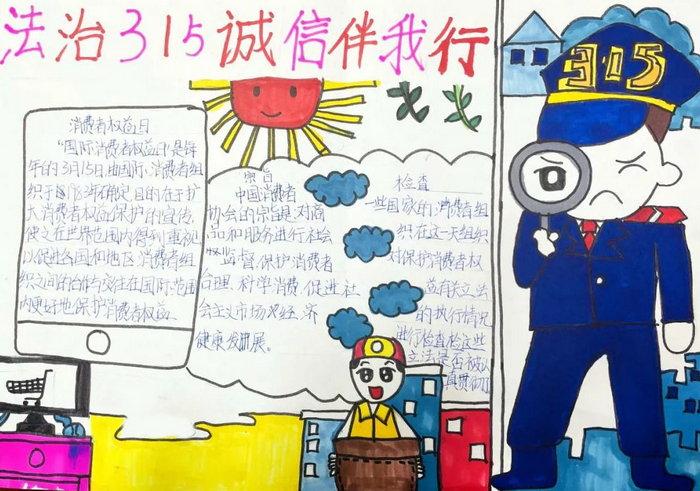 法治315诚信伴我行
315
消费者权益日
"国际消费者权益日"是每
年的3月15日,由国际消费者组
织于1983年确定,目的在于扩
大消费者权益保护的宣传,
使之在世界范围内得到重视,
以促进各国和地区消费者组
织之间的合作与交往,在国际范围
内更好地保护消费者权益。
宗旨
中国消费者
协会的宗旨是:对商
品和服务进行社会
监督,保护消费者
合理、科学消费,促进社
会主义市场经济
健康发展。
检查
一些国家的消费者组
织在这一天组织
对保护消费者权
益有关立法
的执行情况
进行检查,检这些
立法是否被认
真贯彻